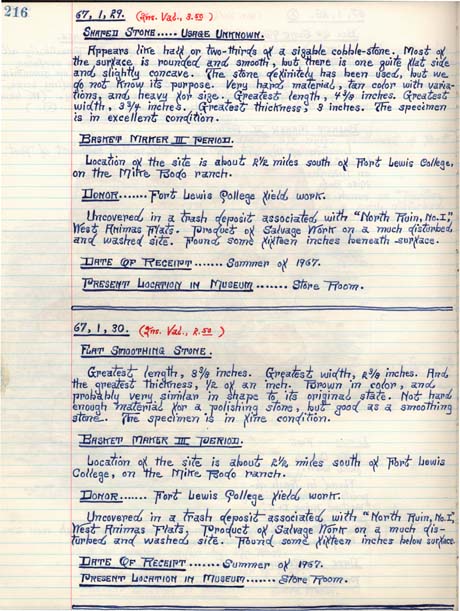 216
67, 1, 29. (Ins. Val., 3.50)
Shaped Stone..... Usage Unknown.
Appears like half or two-thirds of a sizable cobble-stone. Most of
the surface is rounded and smooth, but there is one quite flat side
and slightly concave. The stone definitely has been used, but we
do not know its purpose. Very hard material, tan color with varia-
tions, and heavy for size. Greatest length, 4 7/8 inches. Greatest
width, 3 3/4 inches. Greatest thickness, 3 inches. The specimen
is in excellent condition.
Basket Maker III Period.
Location of the site is about 2 1/2 miles south of Fort Lewis College,
on the Mike Bodo ranch.
Donor....... Fort Lewis College field work.
Uncovered in a trash deposit associated with "North Ruin, No. I,"
West Animas Flats. Product of Salvage Work on a much disturbed
and washed site. Found some fifteen inches beneath surface.
Date Of Receipt ....... Summer of 1967.
Present Location in Museum....... Store Room.
67, 1, 30. (Ins. Val., 2.50)
Flat Smoothing Stone.
Greatest length, 3/8 inches. Greatest width, 2 3/8 inches. And
the greatest thickness, 1/2 of an inch. Brown in color, and
probably very similar in shape to its original state. Not hard
enough material for a polishing stone, but good as a smoothing
stone. The specimen is in fine condition.
Basket Maker III Period.
Location of the site is about 2 1/2 miles south of Fort Lewis
College, on the Mike Bodo ranch.
Donor....... Fort Lewis College field work.
Uncovered in a trash deposit associated with "North Ruin, No. I,"
West Animas Flats. Product of Salvage Work on a much dis-
turbed and washed site. Found some fifteen inches below surface.
Date Of Receipt ....... Summer of 1967.
Present Location in Museum....... Store Room.